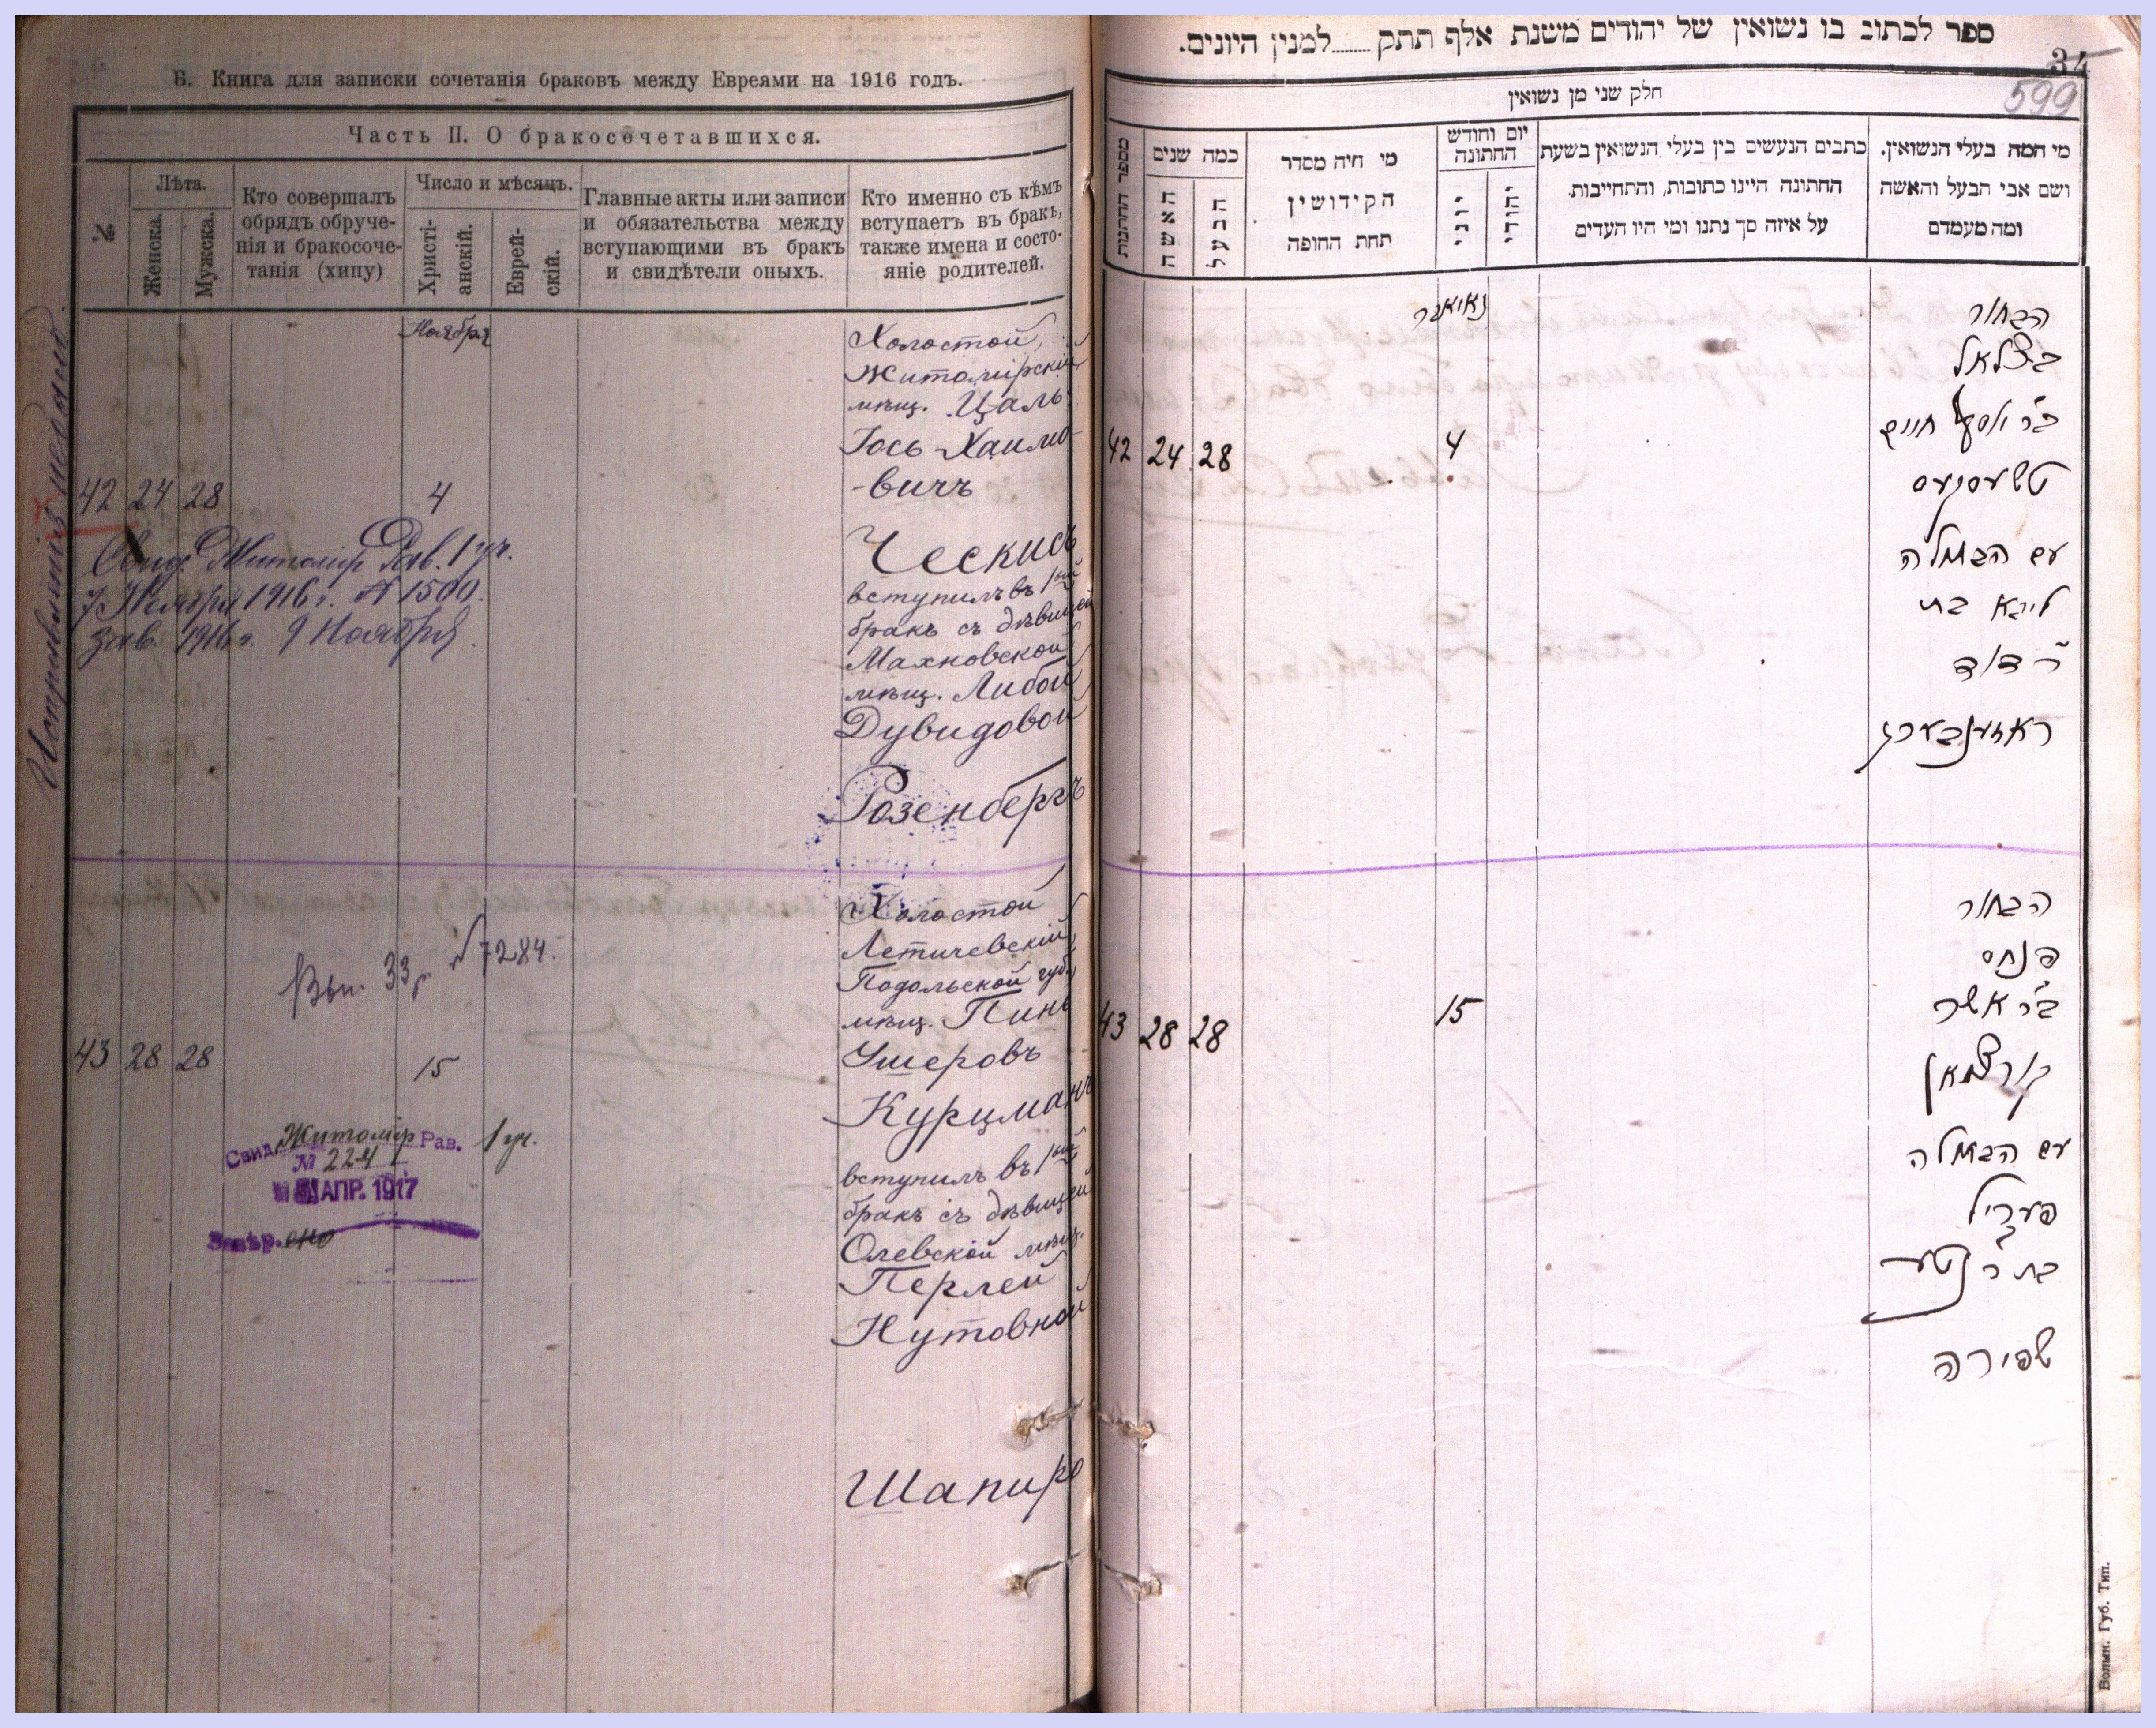 Б. Книга для записки сочетанія браковъ между Евреями на 1916 годъ.
Часть II. О бракосочетавшихся.
№
Лѣта.
Женска.
Мужска.
Кто совершалъ
обрядъ обруче-
нія и бракосоче-
танія (хипу)
Число и мѣсяцъ.
Христі-
анскій.
Еврей-
скій.
Главные акты или записи
и обязательства между
вступающими въ бракъ
и свидѣтели оныхъ.
Кто именно съ кѣмъ
вступаетъ въ бракъ,
также имена и состо-
яніе родителей.
Ноября
42 24 28 4
Холостой,
Житомірскій
мѣщ. Цаль
Іось Хаимо
-вичъ
Ческисъ
вступилъ въ 1ый
бракъ съ дѣвицей
Махновской
мѣщ. Либой
Дувидовой
Розенбергъ
Свид. Житомір Рав. 1 уч.
7 Ноября 1916 г. № 1500.
зав. 1916 г. 9 Ноября.
43 28 28 15
Холостой
Летичевскій
Подольской губ.
мѣщ. Пинь
Ушеровъ
Курцманъ
вступилъ въ 1ый
бракъ съ дѣвицей
Олевской мѣщ.
Перлей
Нутовной
Шапиро
Вып. 33 г. № 7284.
Свид. Житомір Рав. 1 уч.
№ 224
АПР. 1917
ספר לכתוב בו נשואין של יהודים משנת אלף תתק ........ למנין היונים.
34
599
חלק שני מן נשואין
מספר החתנות
כמה שנים
האשה
הבעל
מי היה מסדר
הקידושין
תחת החופה
יום וחודש
החתונה
יוני
יהודי
כתבים הנעשים בין בעלי הנשואין בשעת
החתונה היינו כתובות, והתחייבות.
על איזה סך נתנו ומי היו העדים
מי המה בעלי הנשואין.
ושם אבי הבעל והאשה
ומה מעמדם
נאיאבר
42 24 28 4
הבחור
בצלאל
ב״ר יוסף חיים
טשעסקעס
עם הבתולה
ליבא בת
ר׳ דוד
ראזענבערג
43 28 28 15
הבחור
פנחס
ב״ר אשר
קורצמאן
עם הבתולה
פעריל
בת ר׳ נטע
שפירה
Волын. Губ. Тип.